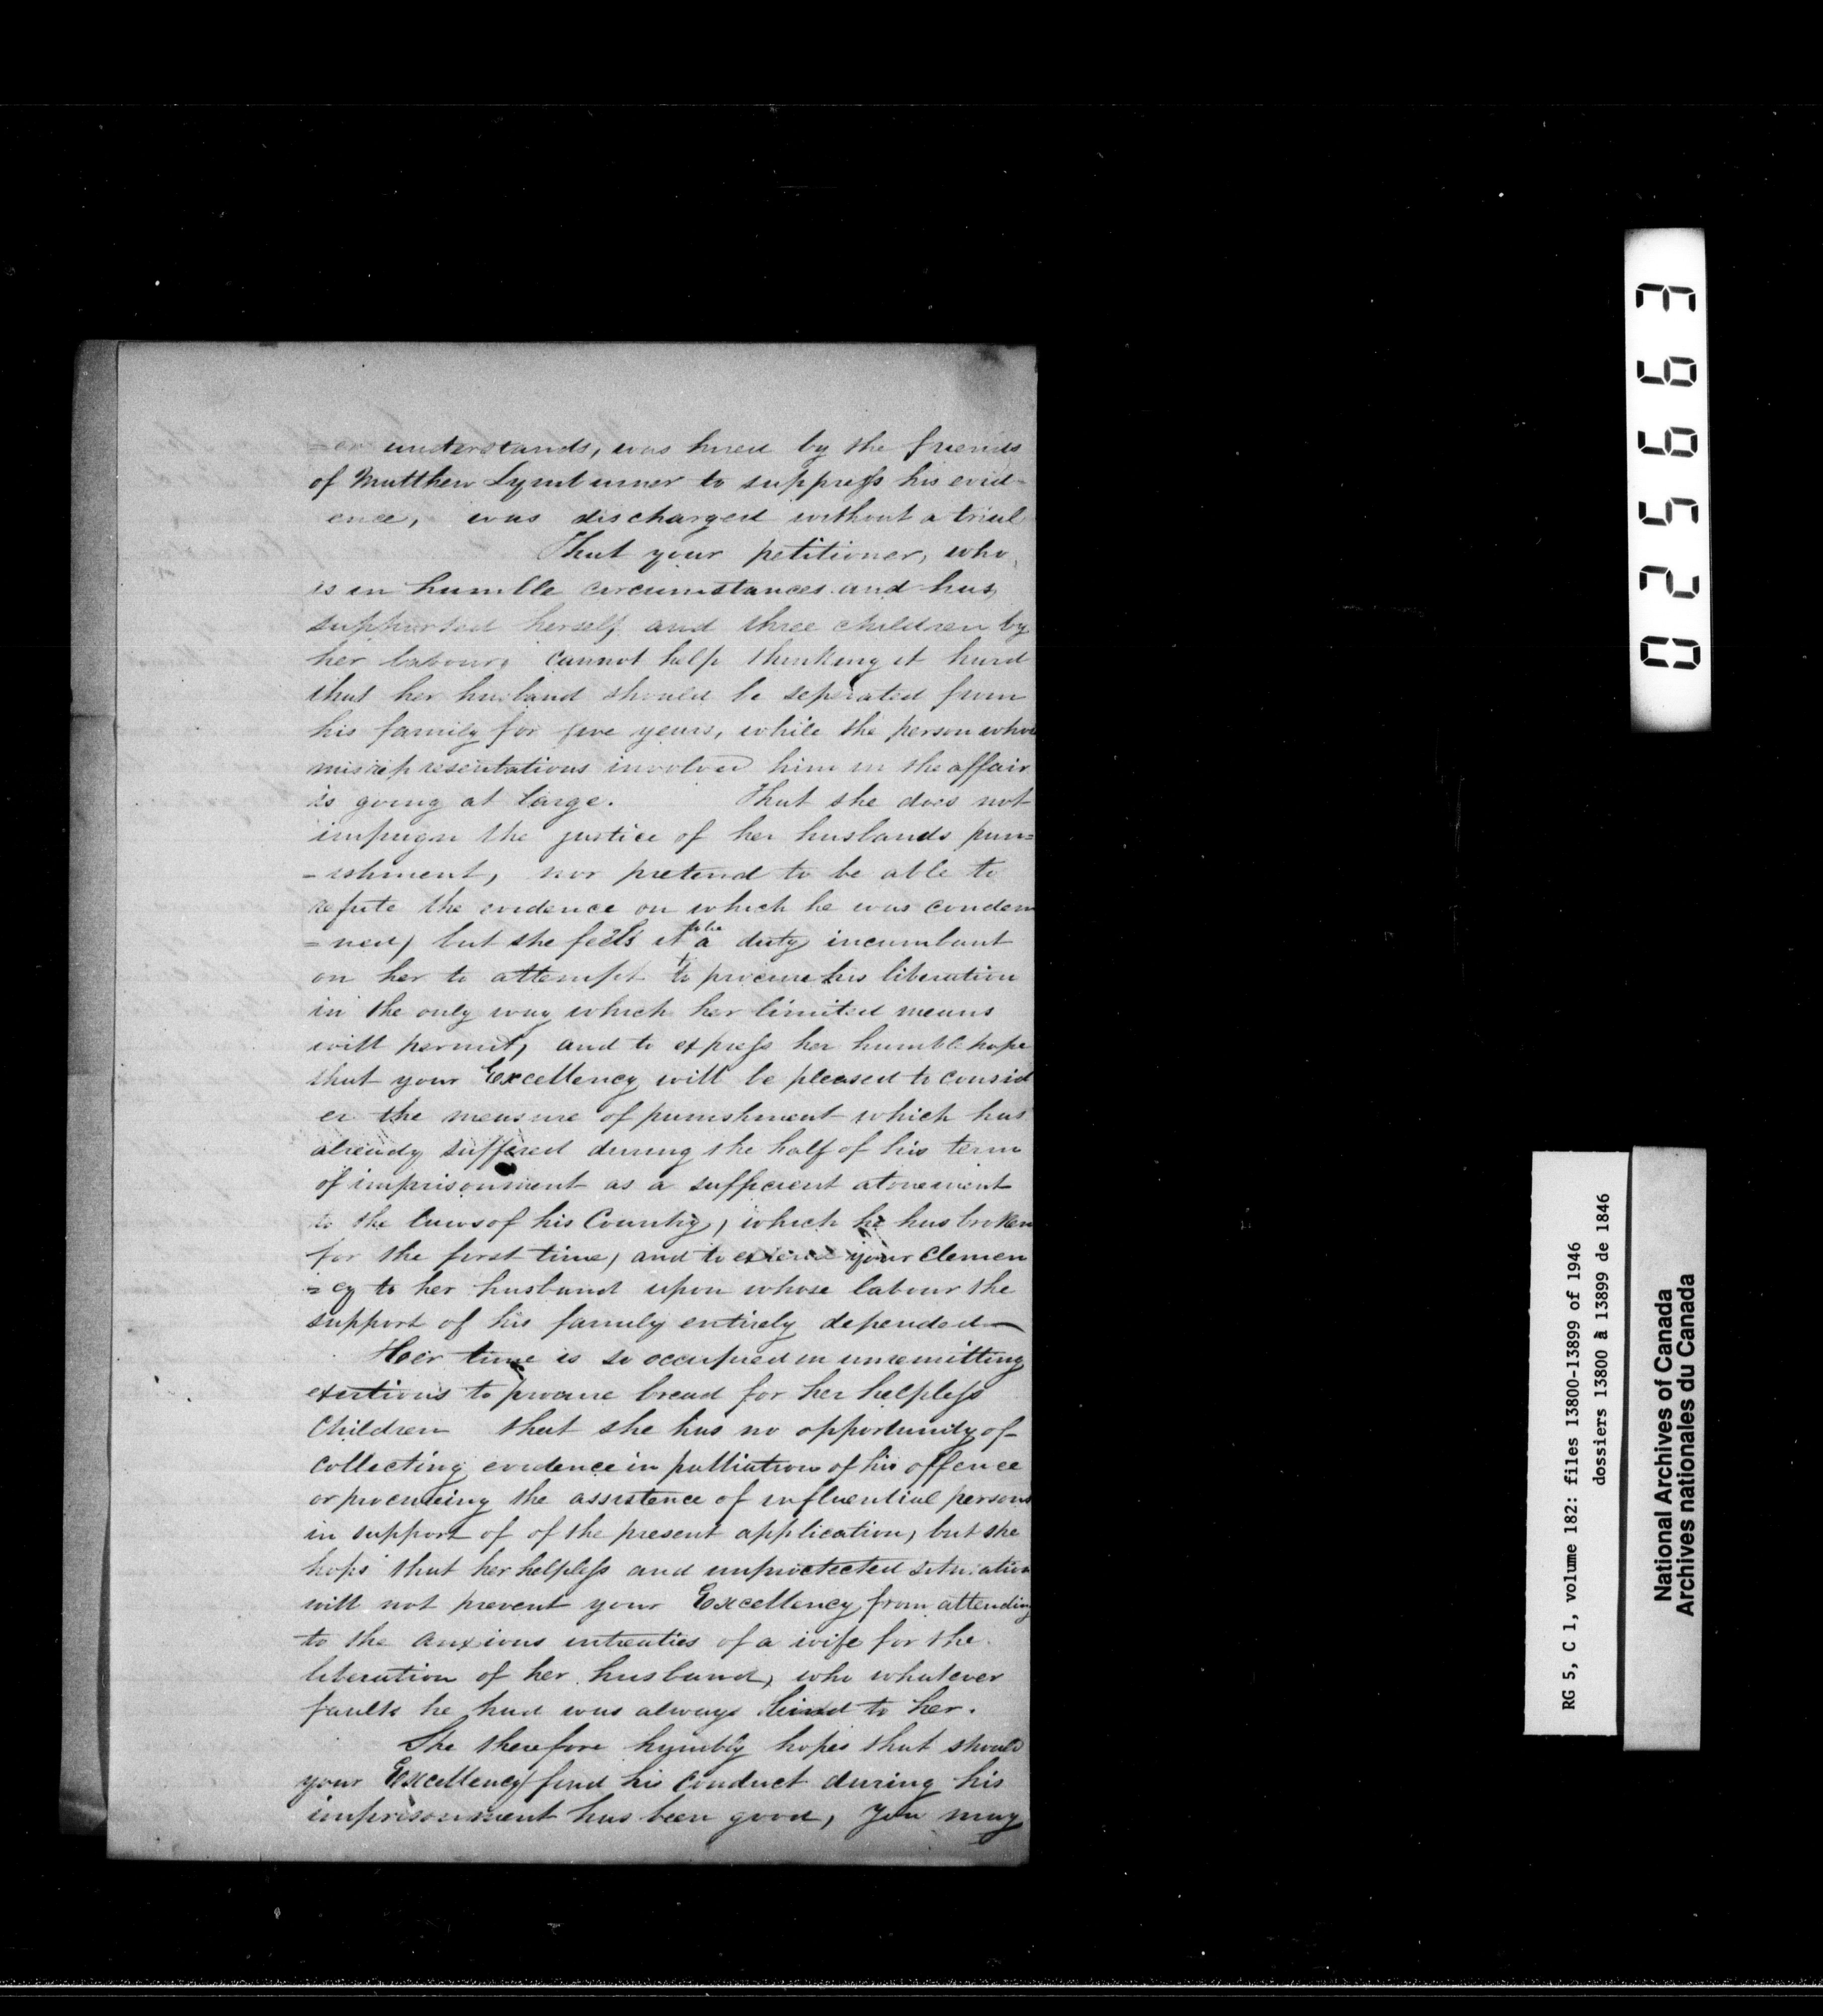 =er understands, was hired by the friends
of Matthew Lymburner to suppress his evid-
ence, was discharged without a trial
That your petitioner, who
is in humble circumstances and has
supported herself and three children by
her labour, cannot help thinking it hard
that her husband should be seperated from
his family for five years, while the person whose
misrepresentations involved him in the affair
is going at large. That she does not
impugn the justice of her husbands pun=
-ishment, nor pretend to be able to
refute the evidence on which he was condem
=ned, but she feels it to be a duty incumbant
on her to attempt to procure his liberation
in the only way which her limited means
will permit, and to express her humble hope
that your Excellency will be pleased to consid
er the measure of punishment which has
already suffered during the half of his term
of imprisonment as a sufficient atonement
to the laws of his Country, which he has broken
for the first time, and to your Clemen
=cy to her husband upon whose labour the
support of his family entirely depended—
Her time is so occupied in unremitting
exertions to procure bread for her helpless
Children that she has no opportunity of
collecting evidence in palliation of his offence
or procuring the assistence of influential persons
in support of of the present application, but she
hops that her helpless and unprotected situation
will not prevent your Excellency from attending
to the anxious entreaties of a wife for the
liberation of her husband, who whatever
faults he had was always kind to her.
She therefore humbly hopes that should
your Excellency find his conduct during his
imprisonment has been good, you may
025663
RG 5, C 1, volume 182: files 13800-13899 of 1946
dossiers 13800 à 13899 de 1846
National Archives of Canada
Archives nationales du Canada